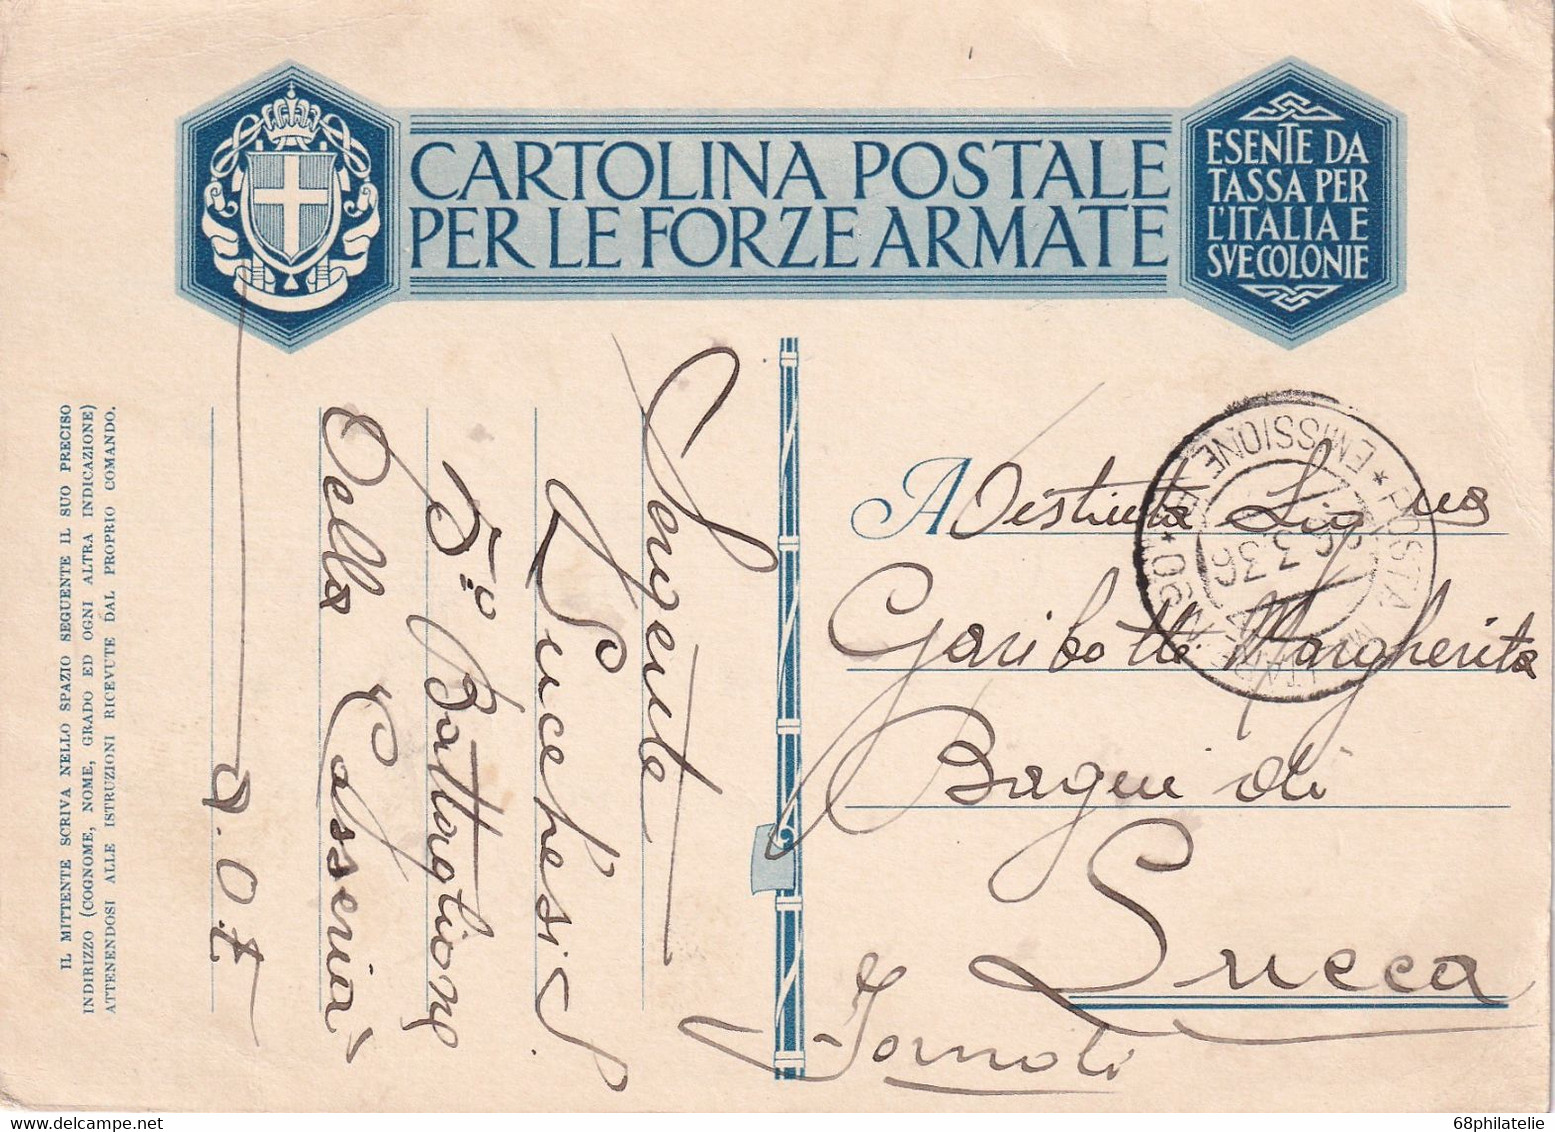 CARTOLINA POSTALE
PER LE FORZE ARMATE
ESENTE DA
TASSA PER
L'ITALIA E
SVE COLONIE
IL MITTENTE SCRIVA NELLO SPAZIO SEGUENTE IL SUO PRECISO
INDIRIZZO (COGNOME, NOME, GRADO ED OGNI ALTRA INDICAZIONE)
ATTENENDOSI ALLE ISTRUZIONI RICEVUTE DAL PROPRIO COMANDO.
Sergente
Lucchesi
5º Battaglione
Della
A.O.I.
A Distinta
Garibotti Margherita
Bagni di
Lucca
* POSTA MILITARE
* EMISSIONE
3.36
68philatelie